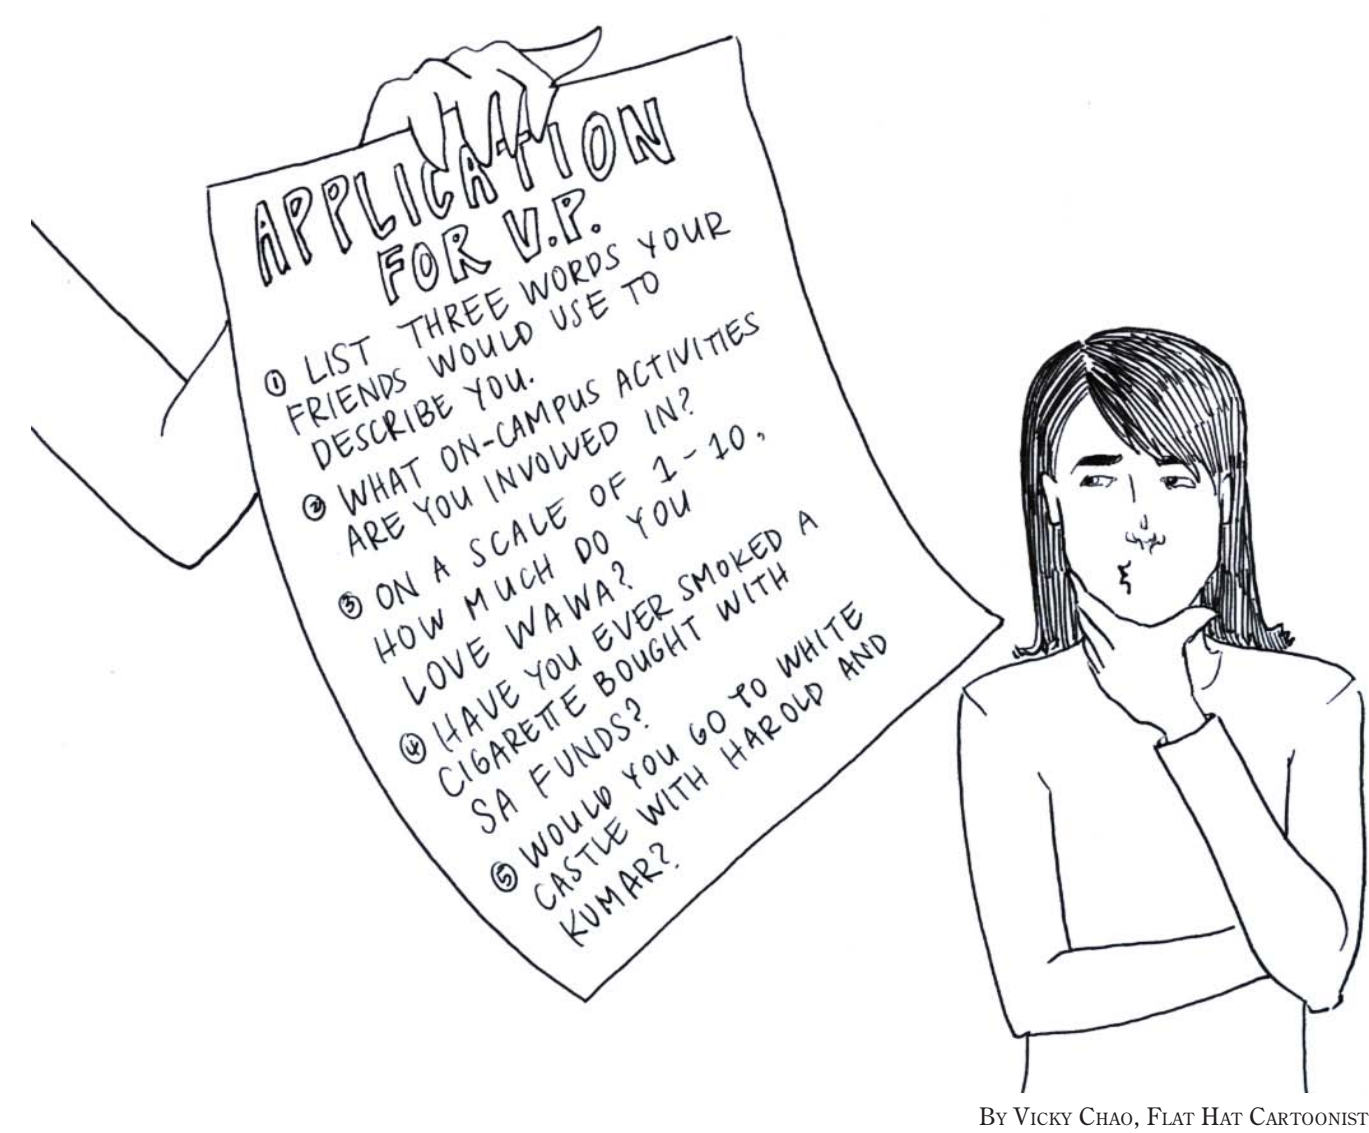 APPLICATION
FOR V.P.
① LIST THREE WORDS YOUR
FRIENDS WOULD USE TO
DESCRIBE YOU.
② WHAT ON-CAMPUS ACTIVITIES
ARE YOU INVOLVED IN?
③ ON A SCALE OF 1-10,
HOW MUCH DO YOU
LOVE WAWA?
④ HAVE YOU EVER SMOKED A
CIGARETTE BOUGHT WITH
SA FUNDS?
⑤ WOULD YOU GO TO WHITE
CASTLE WITH HAROLD AND
KUMAR?
BY VICKY CHAO, FLAT HAT CARTOONIST